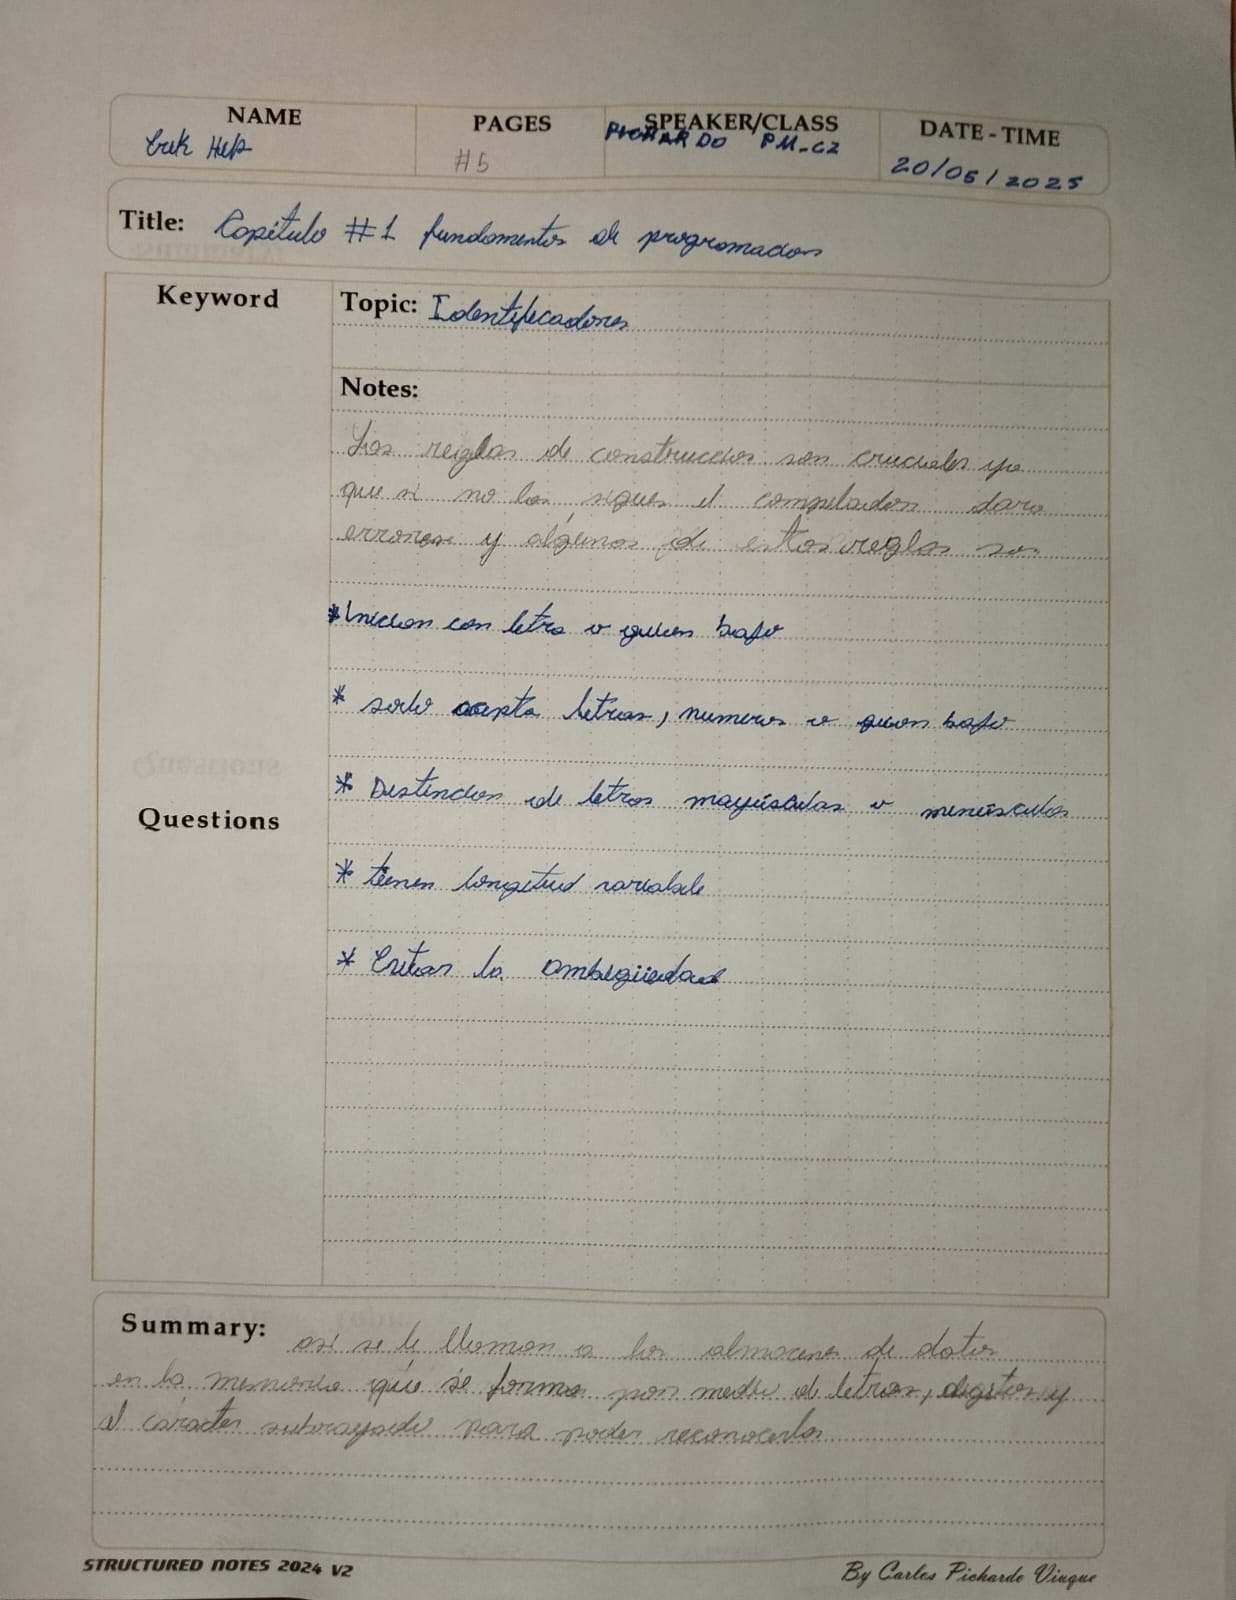 NAME PAGES SPEAKER/CLASS DATE - TIME
Erik #5 PICHARDO PM-CZ 20/05/2025
Title: Capítulo #1 fundamentos de programacion
Keyword
Topic: Identificadores
Notes:
Las reglas de construccion son cruciales ya
que si no las sigues el compilador dara
errores y algunas de estas reglas son
* Inician con letra o guion bajo
* solo acepta letras, numeros o guion bajo
* Distincion de letras mayúsculas o minúsculas
Questions
* tienen longitud variable
* Evitar la ambigüedad
Summary: asi se le llaman a los almacenes de datos
en la memoria que se forma por medio de letras, digitos y
el carácter subrayado para poder reconocerlos
STRUCTURED NOTES 2024 V2 By Carlos Pichardo Viuque